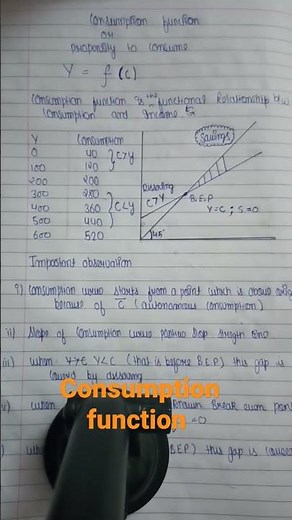 Consumption function
or
propensity to consume
Y = f (C)
Consumption function is the functional Relationship b/w
Consumption and Income
Y Consumption
0 40
100 120
200 200
300 280
400 360
500 440
600 520
C>Y
C<Y
Savings
Dissaving
C>Y
B.E.P
Y=C ; S=0
45°
Important observation
Consumption curve starts from a point which is above origin
because of C̅ (autonomous consumption)
ii) Slope of Consumption curve
iii) when Y<C (that is before B.E.P) this gap is
covered by dissaving
Consumption
function
when
Break even point
=0
B.E.P) this gap is